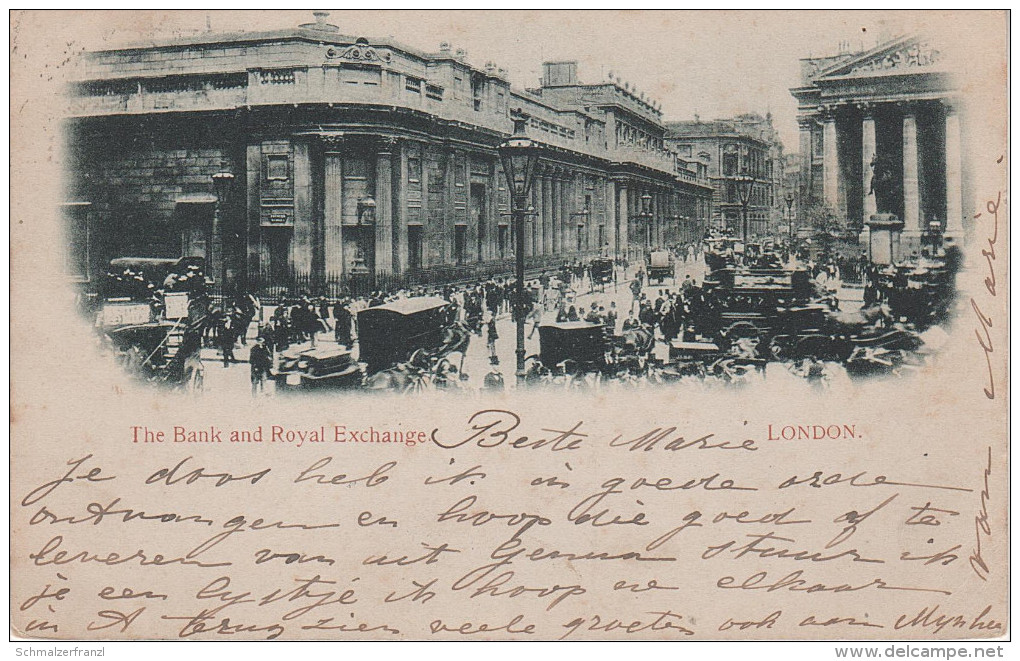 The Bank and Royal Exchange.
LONDON.
Beste Marie
Je doos heb ik in goede orde
ontvangen en hoop die goed af te
leveren van uit Genua stuur ik
je een lijstje ik hoop we elkaar
in A terug zien veele groeten ook aan
van Marie
Schmalzerfranzl
www.delcampe.net